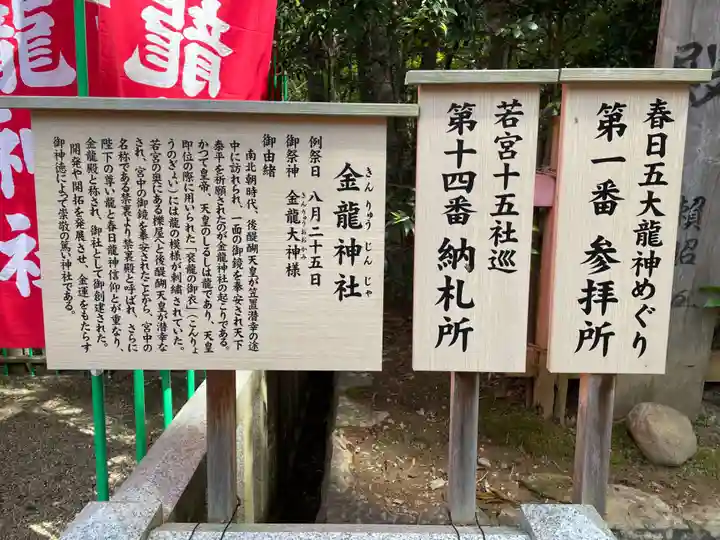 春日五大龍神めぐり
第一番 参拝所
若宮十五社巡
第十四番 納札所
金龍神社
きん りゅう じん じゃ
例祭日 八月二十五日
御祭神 金龍大神様
きんりゅうおおかみ
御由緒
南北朝時代、後醍醐天皇が笠置潜幸の途
中に訪れられ、一面の御鏡を奉安され天下
泰平を祈願されたのが金龍神社の起こりである。
かつて皇帝、天皇のしるしは龍であり、天皇
即位の際に用いられた「袞龍の御衣」(こんりょ
うのぎょい)には龍の模様が刺繍されていた。
若宮の奥にある拝屋へと後醍醐天皇が潜幸な
され、宮中の御鏡を奉安されたことから、宮中の
名称である禁裏より禁裏殿と呼ばれ、さらに
陛下の尊い龍と春日龍神信仰とが重なり、
金龍殿と称され、御社として御創建された。
開発や開拓を発展させ、金運をもたらす
御神徳によって崇敬の篤い神社である。
龍神社
龍